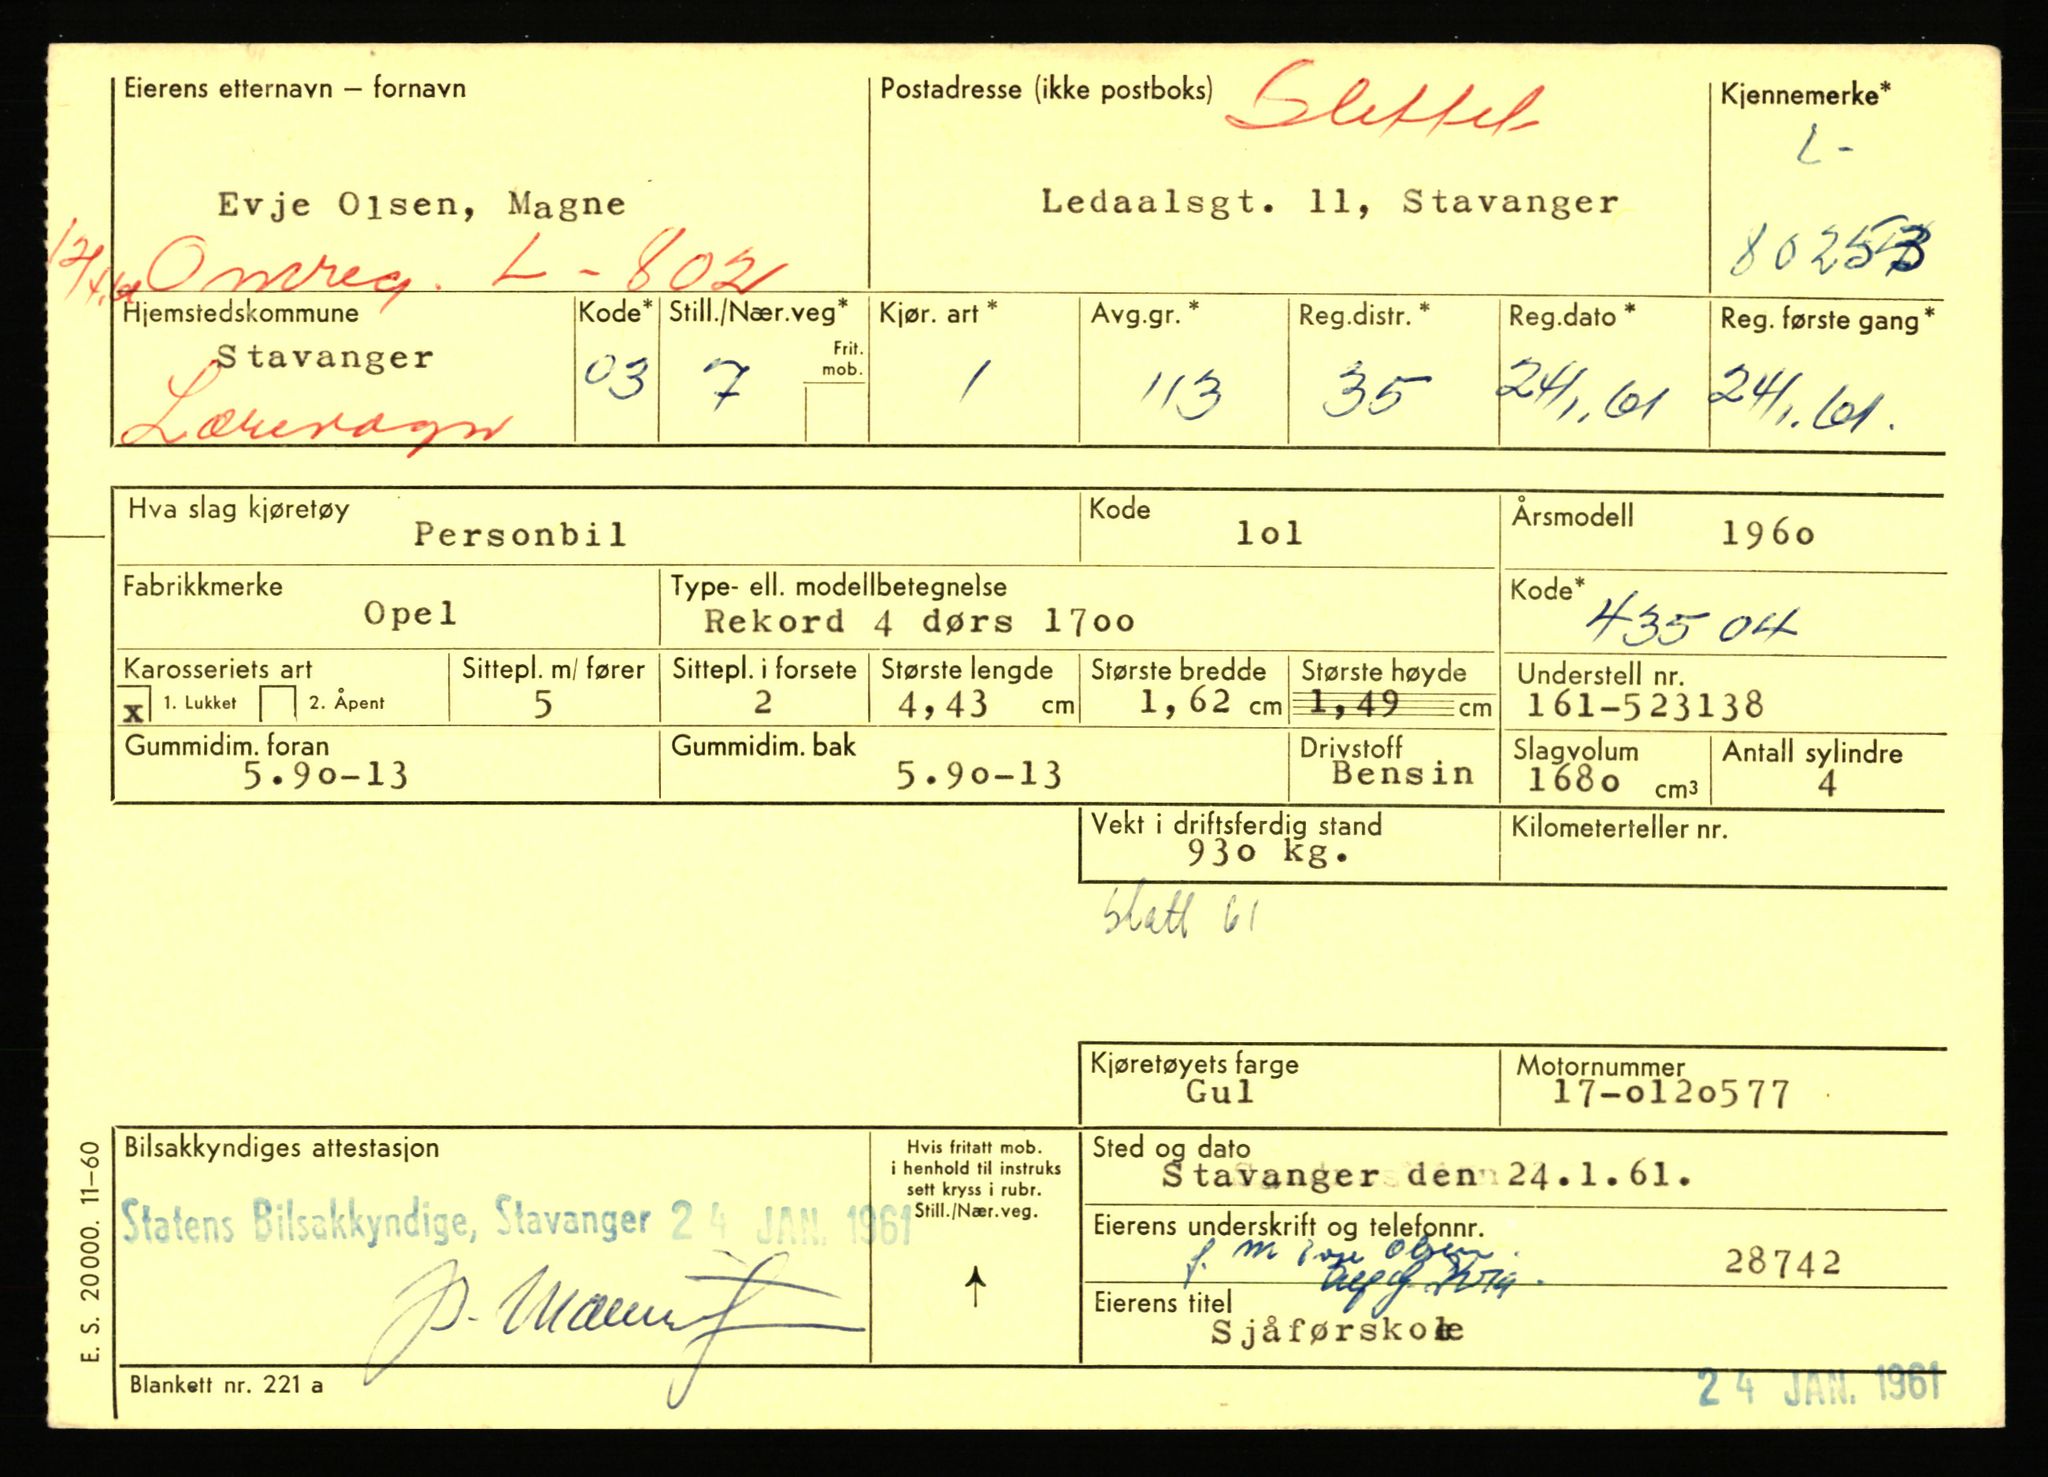 Eierens etternavn – fornavn
Postadresse (ikke postboks)
Slettet
Kjennemerke*
L-
Evje Olsen, Magne
Ledaalsgt. 11, Stavanger
80253
Omreg. L - 802
Hjemstedskommune
Kode*
Still./Nær.veg*
Kjør. art*
Avg.gr.*
Reg.distr.*
Reg.dato*
Reg. første gang*
Stavanger
Frit. mob.
03
7
1
113
35
24/1.61
24/1.61.
Lærevogn
Hva slag kjøretøy
Personbil
Kode
lol
Årsmodell
196o
Fabrikkmerke
Opel
Type- ell. modellbetegnelse
Rekord 4 dørs 17oo
Kode*
43504
Karosseriets art
x 1. Lukket 2. Åpent
Sittepl. m/ fører
5
Sittepl. i forsete
2
Største lengde
4,43 cm
Største bredde
1,62 cm
Største høyde
1,49 cm
Understell nr.
161-523138
Gummidim. foran
5.9o-13
Gummidim. bak
5.9o-13
Drivstoff
Bensin
Slagvolum
168o cm3
Antall sylindre
4
Vekt i driftsferdig stand
93o kg.
Kilometerteller nr.
61
Kjøretøyets farge
Gul
Motornummer
17-o12o577
Bilsakkyndiges attestasjon
Statens Bilsakkyndige, Stavanger 24 JAN. 1961
Hvis fritatt mob.
i henhold til instruks
sett kryss i rubr.
Still./Nær.veg.
Sted og dato
Stavanger den 24.1.61.
Eierens underskrift og telefonnr.
28742
Eierens titel
Sjåførskole
Blankett nr. 221 a
24 JAN. 1961
E. S. 20000. 11-60